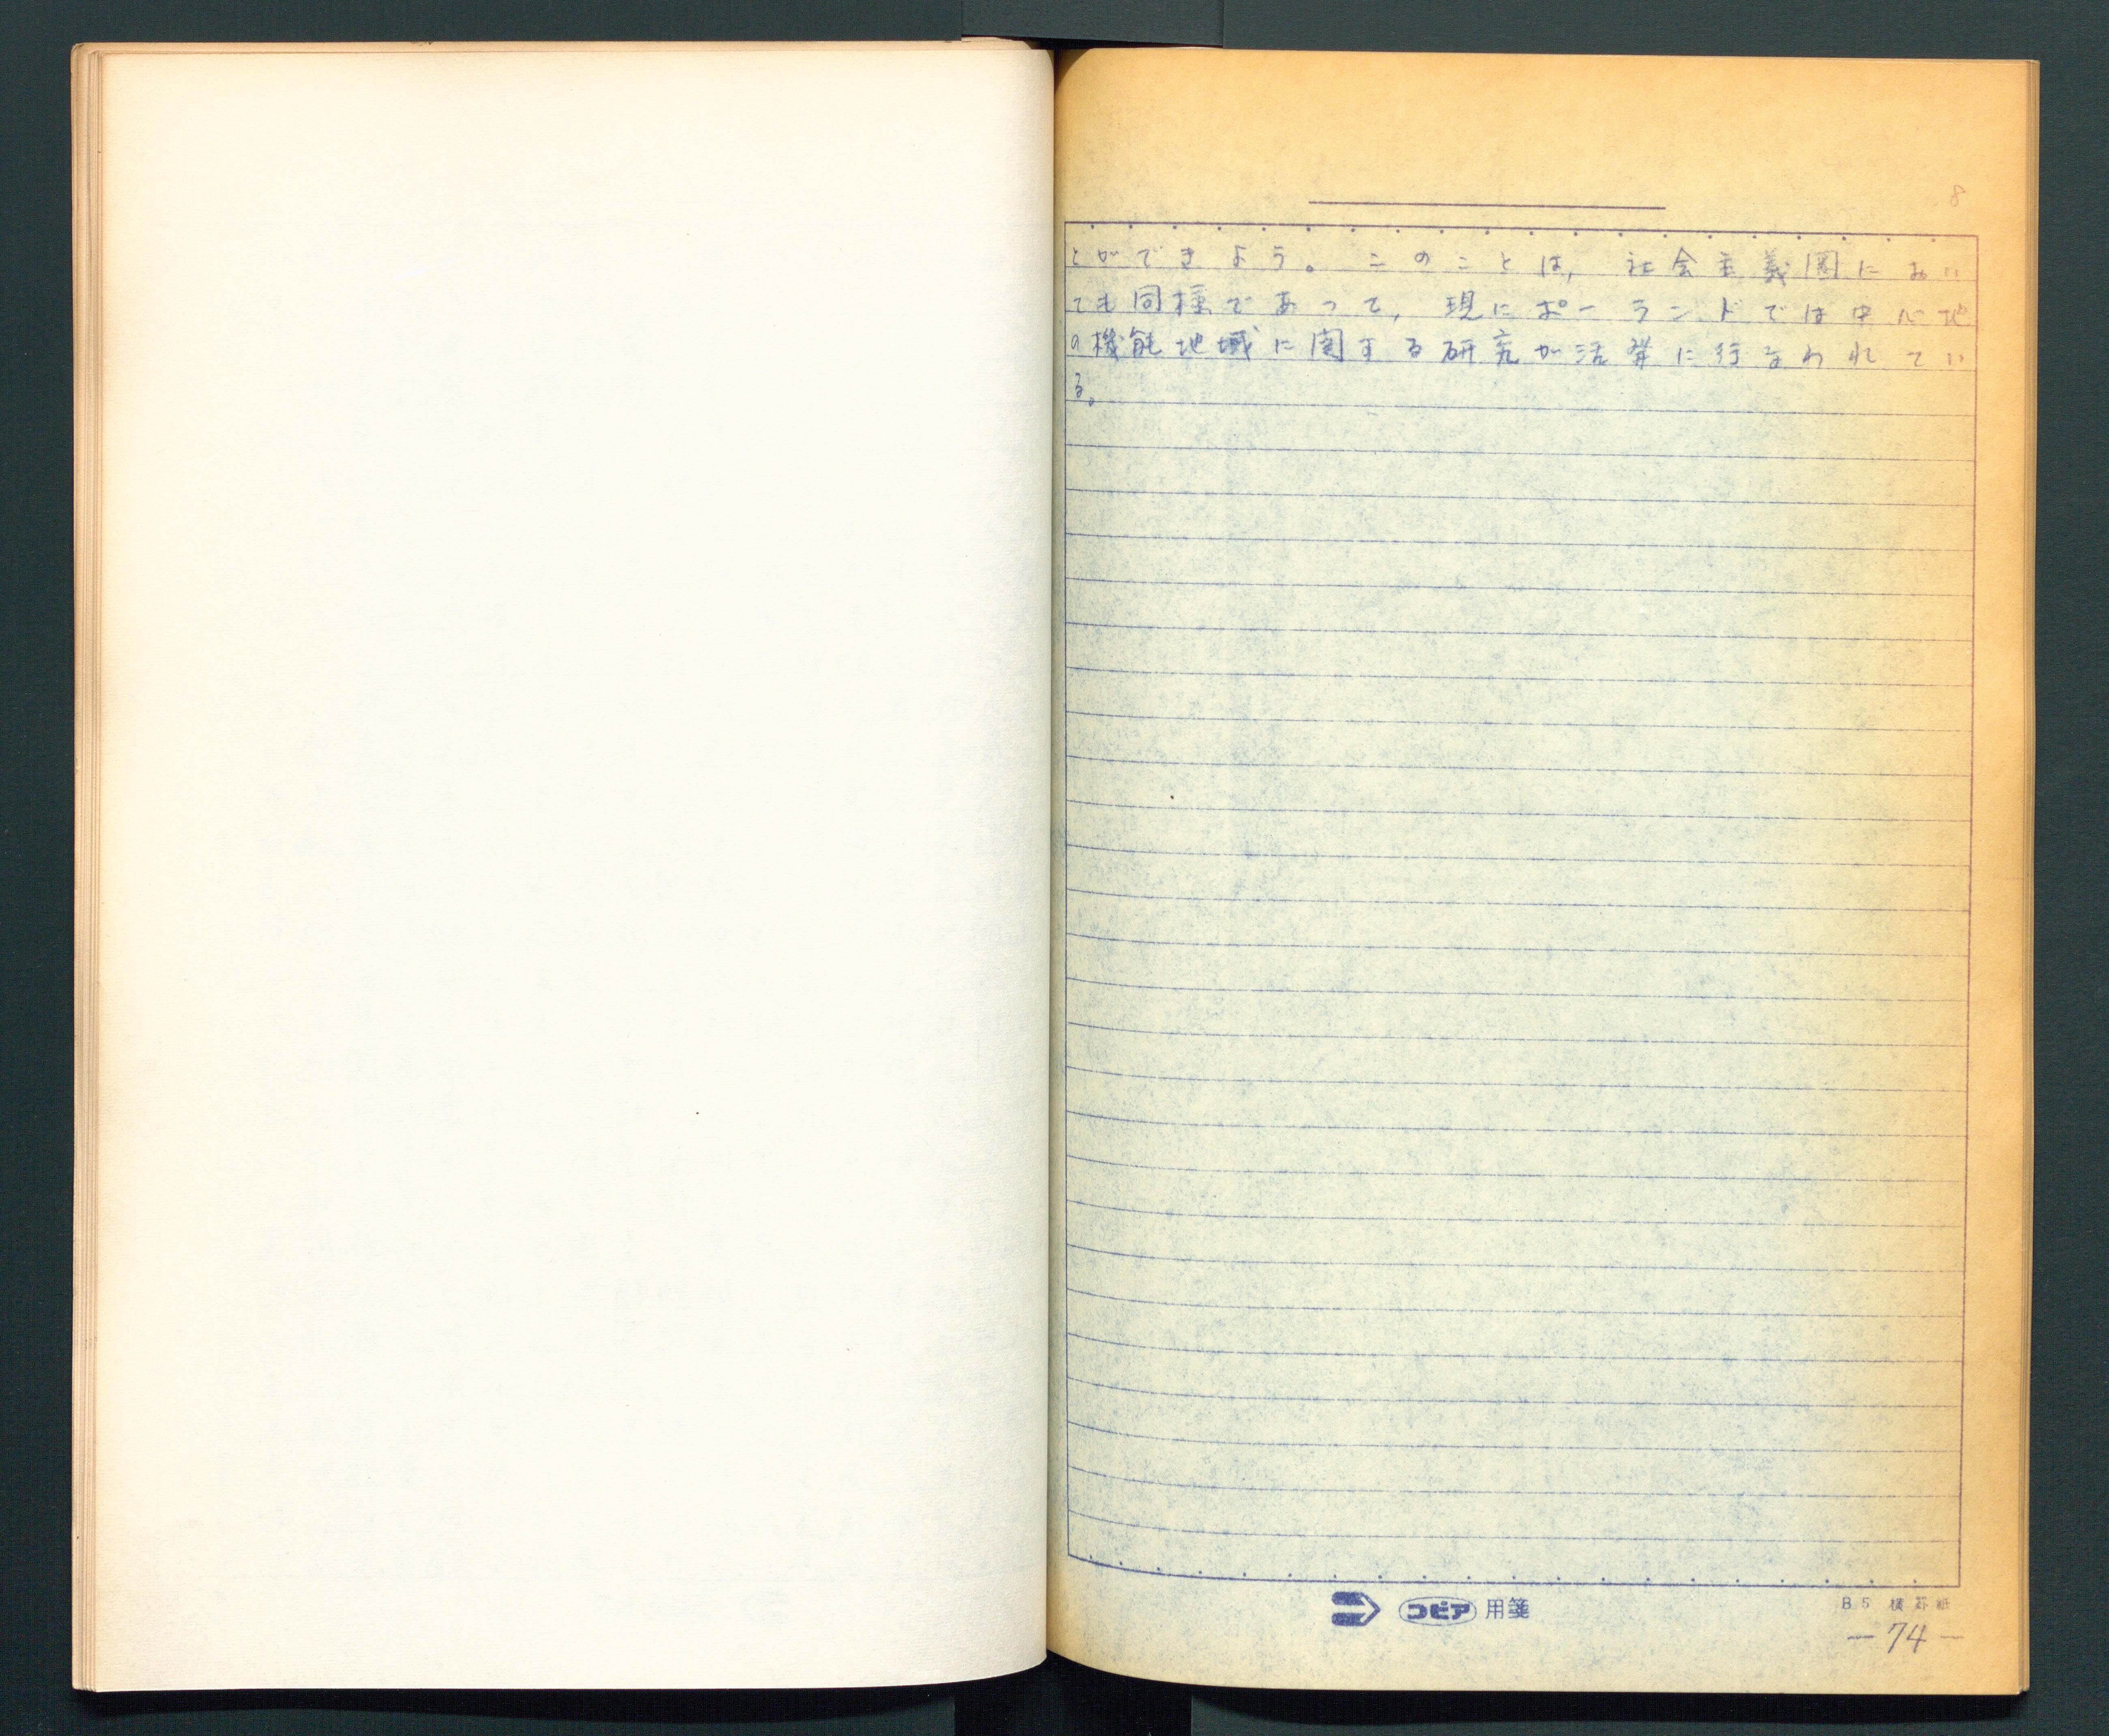 8
とができよう。このことは，社会主義圏におい
ても同様であって，現にポーランドでは中心地
の機能地域に関する研究が活発に行なわれてい
る。
コピア 用箋
B5 横罫紙
— 74 —